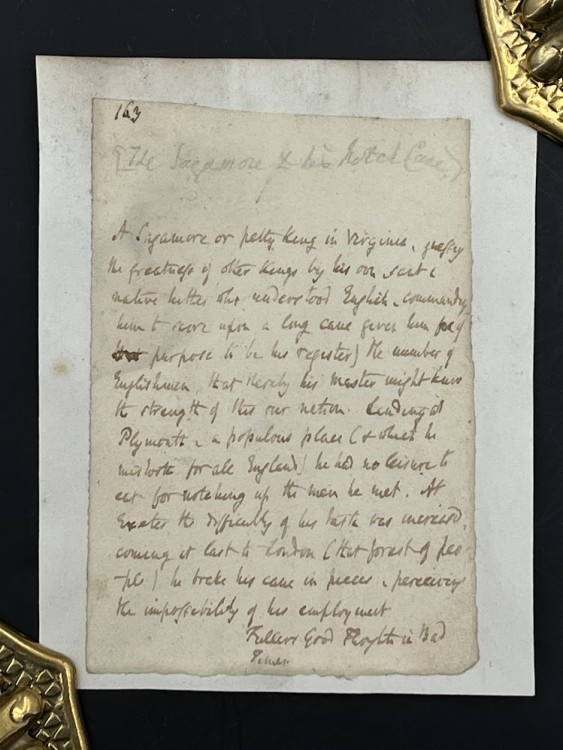 163
[The Sagamore & his Notch Cane]
A Sagamore or petty King in Virginia, guessg
the greatness of other Kings by his own, sent a
native hither who understood English, commandg
him to score upon a long cane given him for yt
purpose to be his register) the number of
Englishmen, that thereby his master might know
the strength of this our nation. Landing at
Plymouth, a populous place (& which he
mistook for all England) he had no leisure to
eat for notching up the men he met. At
Exeter the difficulty of his task was increasd,
coming at last to London (that forest of peo
-ple) he broke his cane in pieces, perceiving
the impossibility of his employment
Fullers Good Thoughts in Bad
Times